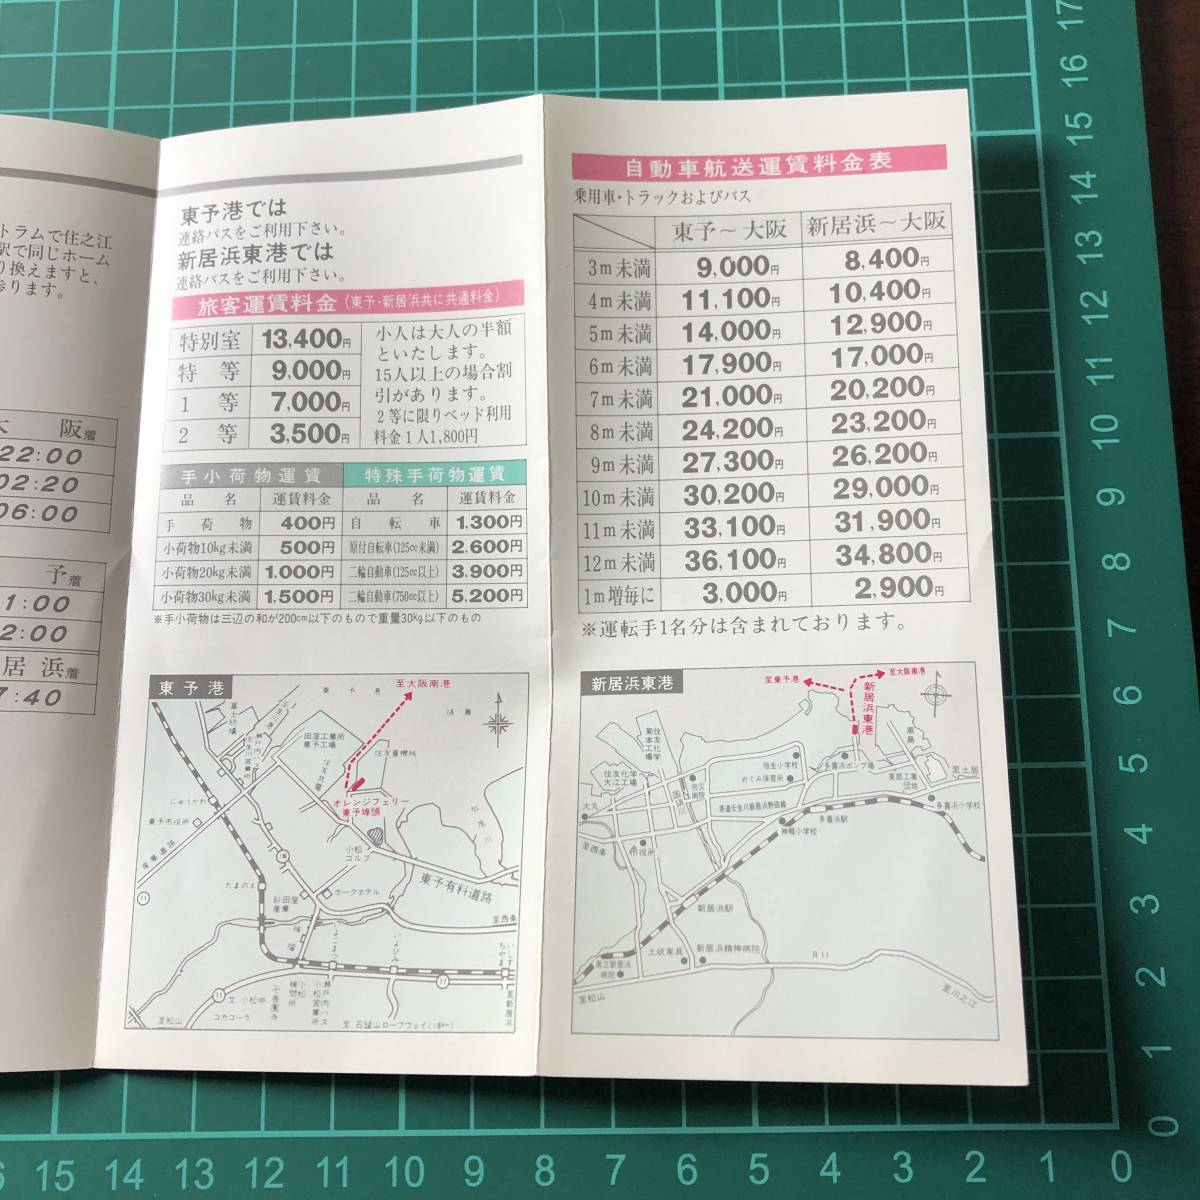 トラムで住之江
駅で同じホーム
り換えますと、
参ります。
阪着
22:00
02:20
06:00
予着
1:00
2:00
居浜着
7:40
東予港では
連絡バスをご利用下さい。
新居浜東港では
連絡バスをご利用下さい。
旅客運賃料金(東予・新居浜共に共通料金)
特別室 13,400円
特等 9,000円
1等 7,000円
2等 3,500円
小人は大人の半額
といたします。
15人以上の場合割
引があります。
2等に限りベッド利用
料金1人1,800円
手小荷物運賃
品名 運賃料金
手荷物 400円
小荷物10kg未満 500円
小荷物20kg未満 1.000円
小荷物30kg未満 1.500円
特殊手荷物運賃
品名 運賃料金
自転車 1.300円
原付自転車(125cc未満) 2.600円
二輪自動車(125cc以上) 3.900円
二輪自動車(750cc以上) 5.200円
※手小荷物は三辺の和が200cm以下のもので重量30kg以下のもの
東予港
至大阪南港
東予港
燧灘
富士紡績
壬生川港
田窪工業所
東予工場
住友重機械
オレンジフェリー
東予埠頭
加茂川
にゅうがわ
東予市役所
産業道路
小松
ゴルフ
東予有料道路
たまのえ
ホークホテル
砂田屋
産業
至西条
11
いよこまつ
いよひみ
いしづちやま
文小松中
コカコーラ
卍香園寺
至松山
至石鎚山ロープウェイ(18km)
至新居浜
自動車航送運賃料金表
乗用車・トラックおよびバス
東予〜大阪 新居浜〜大阪
3m未満 9,000円 8,400円
4m未満 11,100円 10,400円
5m未満 14,000円 12,900円
6m未満 17,900円 17,000円
7m未満 21,000円 20,200円
8m未満 24,200円 23,200円
9m未満 27,300円 26,200円
10m未満 30,200円 29,000円
11m未満 33,100円 31,900円
12m未満 36,100円 34,800円
1m増毎に 3,000円 2,900円
※運転手1名分は含まれております。
新居浜東港
至東予港
至大阪南港
新居浜東港
黒島
菊本工場
住友化学
住友化学
大江工場
垣生小学校
めぐみ保育所
多喜浜ポンプ場
東部工業
団地
至土居
大丸
労災病院
国領川
県道壬生川新居浜野田線
多喜浜小学校
多喜浜駅
神郷小学校
至西条
市役所
新居浜駅
土岐家具
新居浜精神病院
県立新居浜
病院
R11
至松山
至川之江
17
16
15
14
13
12
11
10
9
8
7
6
5
4
3
2
1
0
15 14 13 12 11 10 9 8 7 6 5 4 3 2 1 0